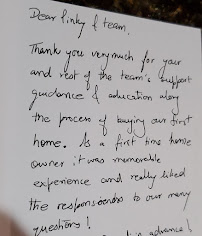 Dear Pinky & team,
Thank you very much for your
and rest of the team's support
guidance & education along
the process of buying our first
home. As a first time home
owner it was memorable
experience and really liked
the responsiveness to our many
questions!
in advance!